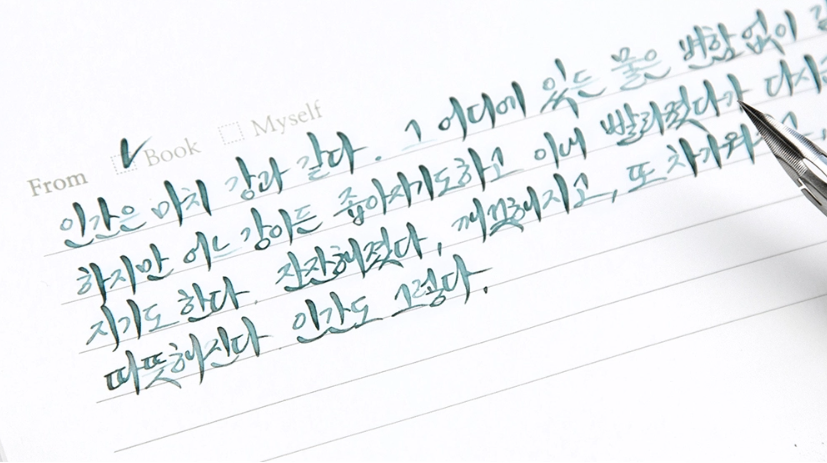 From Book Myself
인간은 마치 강과 같다. 그 어디에 있든 물은 변함없이
하지만 어느 강이든 좁아지기도 하고 이내 빨라졌다가
지기도 한다. 잔잔해졌다, 깨끗해지고, 또
따뜻해진다 인간도 그렇다.